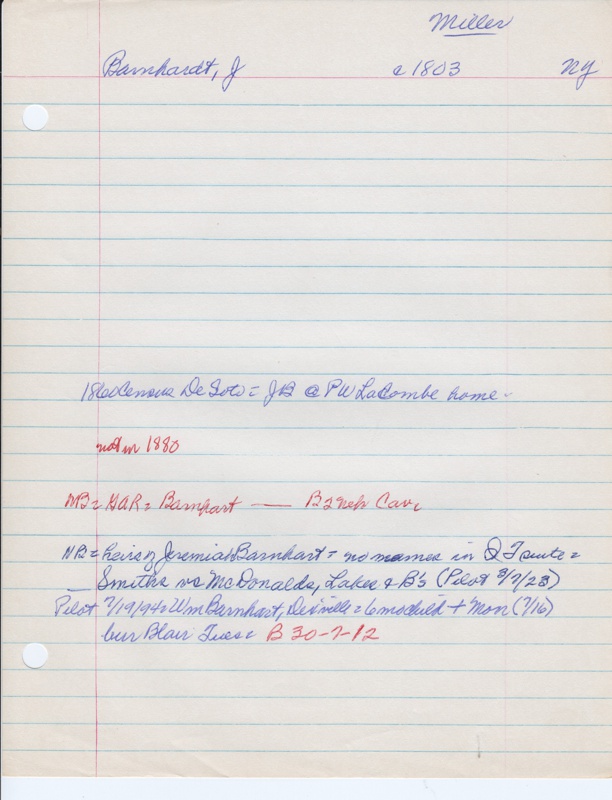 Miller
Barnhardt, J c 1803 NY
1860 Census DeSoto = JB @ PW LaCombe home -
not in 1880
NB = GAR = Barnhart — B 2 Neb Cav.
NB = heirs of Jeremiah Barnhart = no names in Q T suit =
Smiths vs McDonalds, Lakes & B's (Pilot /7/23)
Pilot 7/19/94 = Wm Barnhart, DeSoto = 6 mo child + Mon (7/16)
bur Blair Tues = B 30-7-12